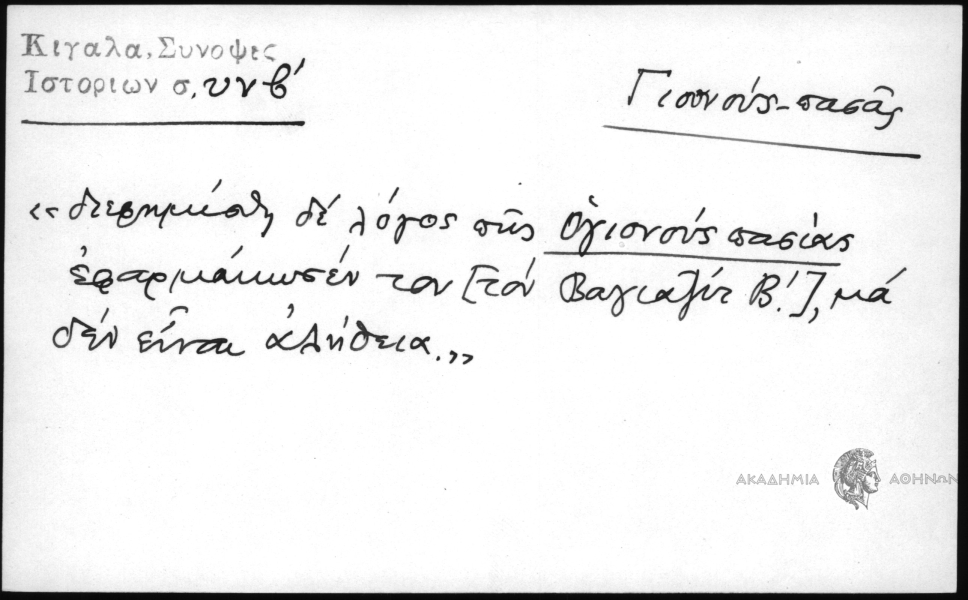 Κιγαλα, Συνοψες
Ιστοριων σ. υνβ'
Γιουνούς-πασᾶς
«διεφημίσθη δέ λόγος πῶς ὀγιονούς πασίας
ἐφαρμάκωσέν τον [τόν Βαγιαζήτ Β'.], μά
δέν εἶναι ἀλήθεια.»
ΑΚΑΔΗΜΙΑ ΑΘΗΝΩΝ